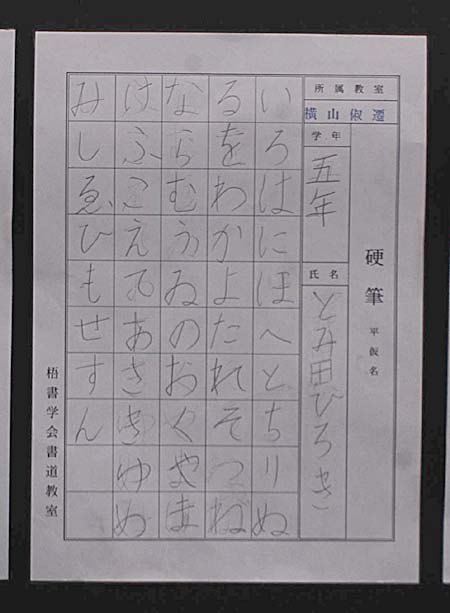 硬筆 平仮名
所属教室
横山俶遷
学年
五年
氏名
とみ田ひろき
いろはにほへとちりぬ
るをわかよたれそつね
ならむうゐのおくやま
けふこえてあさきゆめ
みしゑひもせすん
梧書学会書道教室